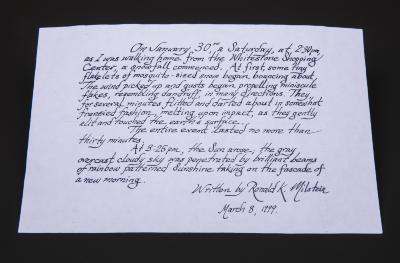 On January 30th a Saturday, at 2:30pm,
as I was walking home from the Whitestone Shopping
Center, a snowfall commenced. At first, some tiny
flakelets of mosquito-sized snow began bouncing about.
The wind picked up and gusts began propelling miniscule
flakes, resembling dandruff, in many directions. They
for several minutes flitted and darted about in somewhat
frenzied fashion, melting upon impact, as they gently
and touched the earth's surface.
The entire event lasted no more than
thirty minutes.
At 3:25pm, the Sun arose; the gray
overcast cloudy sky was penetrated by brilliant beams
of rainbow patterned sunshine taking on the fascade of
a new morning.
Written by Ronald K. Milstein
March 8, 1999.